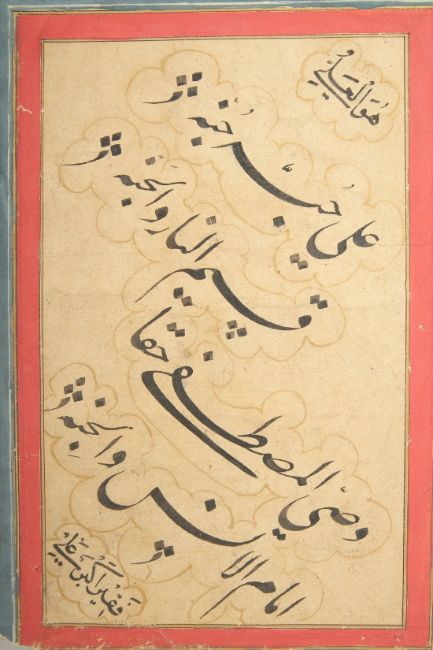 هو العلي
علي حبه جنه
قسيم النار والجنه
وصي المصطفی حقا
امام الانس والجنه